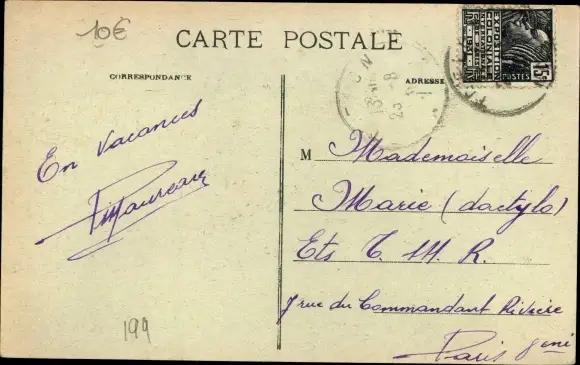 10€
CARTE POSTALE
CORRESPONDANCE
ADRESSE
EXPOSITION COLONIALE INTERNATIONALE PARIS 1931
POSTES 15c
En vacances
M Mademoiselle
Marie (dactylo)
Ets T. M. R.
7 rue du Commandant Rivière
Paris 8eme
199